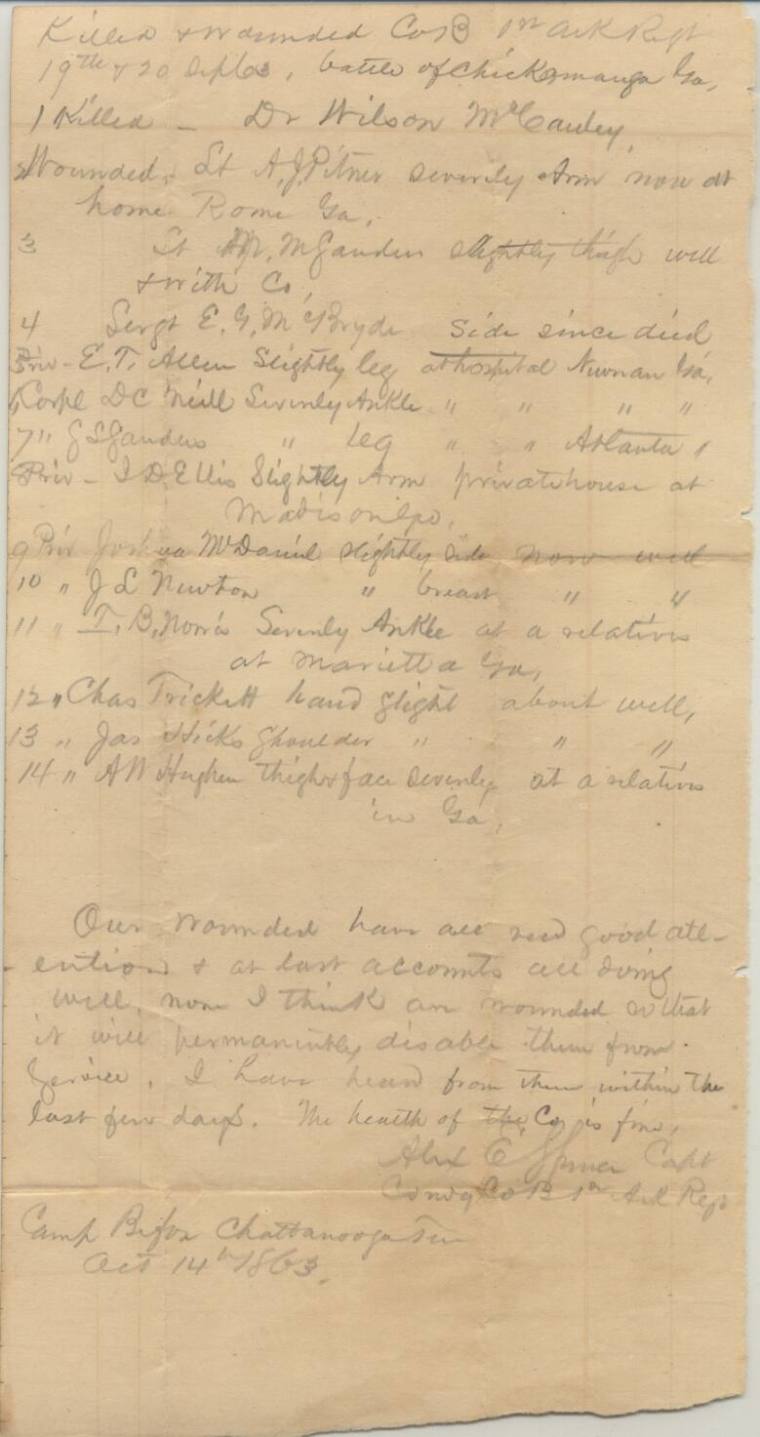 Killed & wounded Co B 1st Ark Regt
19th & 20 Sept 63, battle of Chickamauga Ga,
1 Killed - Dr Wilson McCauley,
2 Wounded, Lt A, J, Pitner severely Arm now at
home Rome Ga,
3 Lt McSanders slightly thigh well
& with Co,
4 Sergt E, G, McBryde Side since died
5 Priv - E. T, Allen Slightly leg at hospital Newnan Ga,
Corpl D C Neill Severely Ankle " " " "
7 " J S Sanders " leg " " Atlanta
Priv - I D Ellis Slightly Arm private house at
Madison Ga,
9 Priv Joshua McDaniel slightly side now well
10 " J L Newton " breast " "
11 " T, B, Norris Severely Ankle at a relatives
at Marietta Ga,
12 " Chas Trickett hand slight about well,
13 " Jas Hicks Shoulder " " "
14 " A W Hughen thigh & face severely at a relatives
in Ga,
Our wounded have all recd good att-
ention & at last accounts all doing
well, none I think are wounded so that
it will permanently disable them from
Service, I have heard from them within the
last few days. The health of the Co, is fine,
Alex E Spence Capt
Comdg Co B 1st Ark Regt
Camp Before Chattanooga Ten
Oct 14th 1863,